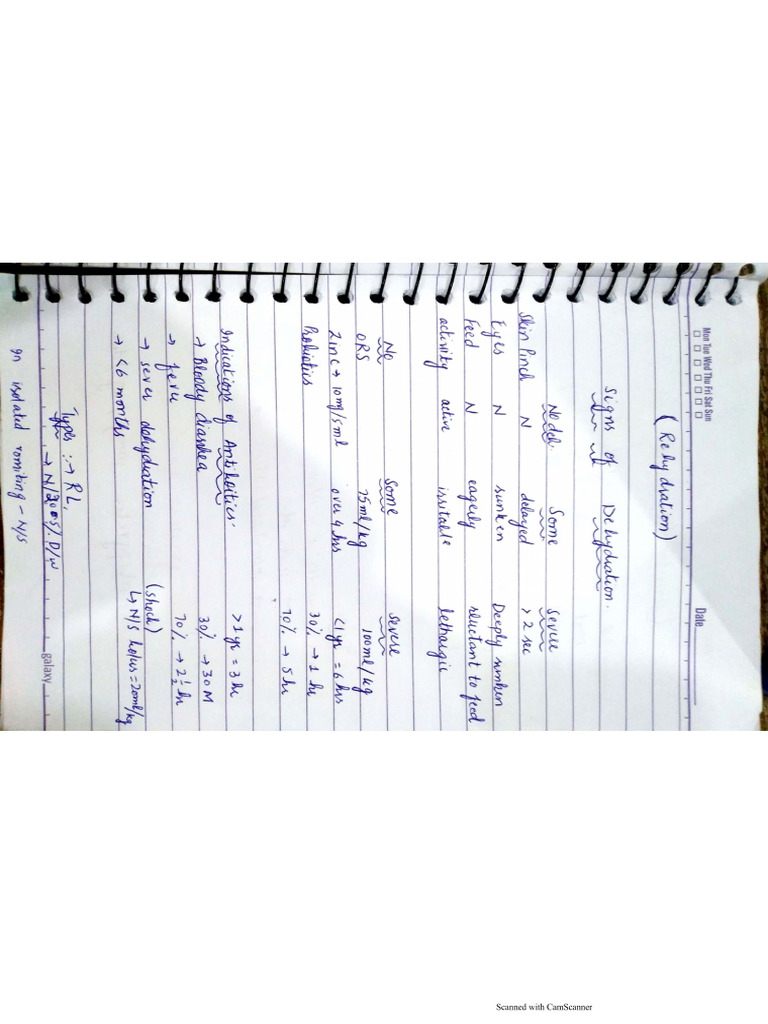 Mon Tue Wed Thu Fri Sat Sun
Date
(Rehydration)
Signs of Dehydration.
No deh. Some Severe
Skin Pinch N delayed > 2 sec
Eyes N sunken Deeply sunken
Feed N eagerly reluctant to feed
activity active irritable lethargic
No Some Severe
ORS 75ml/kg 100ml/kg
Zinc → 10mg/5ml over 4 hrs <1yr = 6 hrs
Probiotics 30% → 1 hr
70% → 5 hr
Indications of Antibiotics. >1 yr = 3 hr
→ Bloody diarrhea 30% → 30 M
→ 70% → 2½ hr
→ sever dehydration (shock)
→ <6 months ↳ N/S bolus = 20ml/kg
Types :→ RL,
→ D/W
galaxy
in isolated vomiting - N/S
Scanned with CamScanner